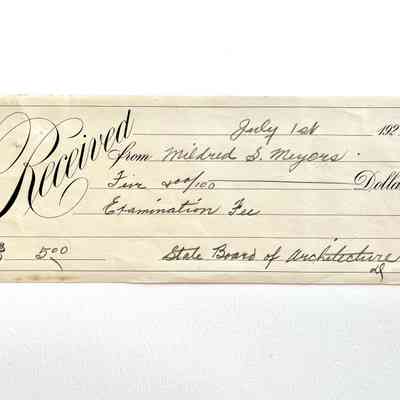 July 1st 192
Received from Mildred S. Meyers.
Five &00/100 Dolla
Examination Fee
$ 5.00 State Board of Architecture